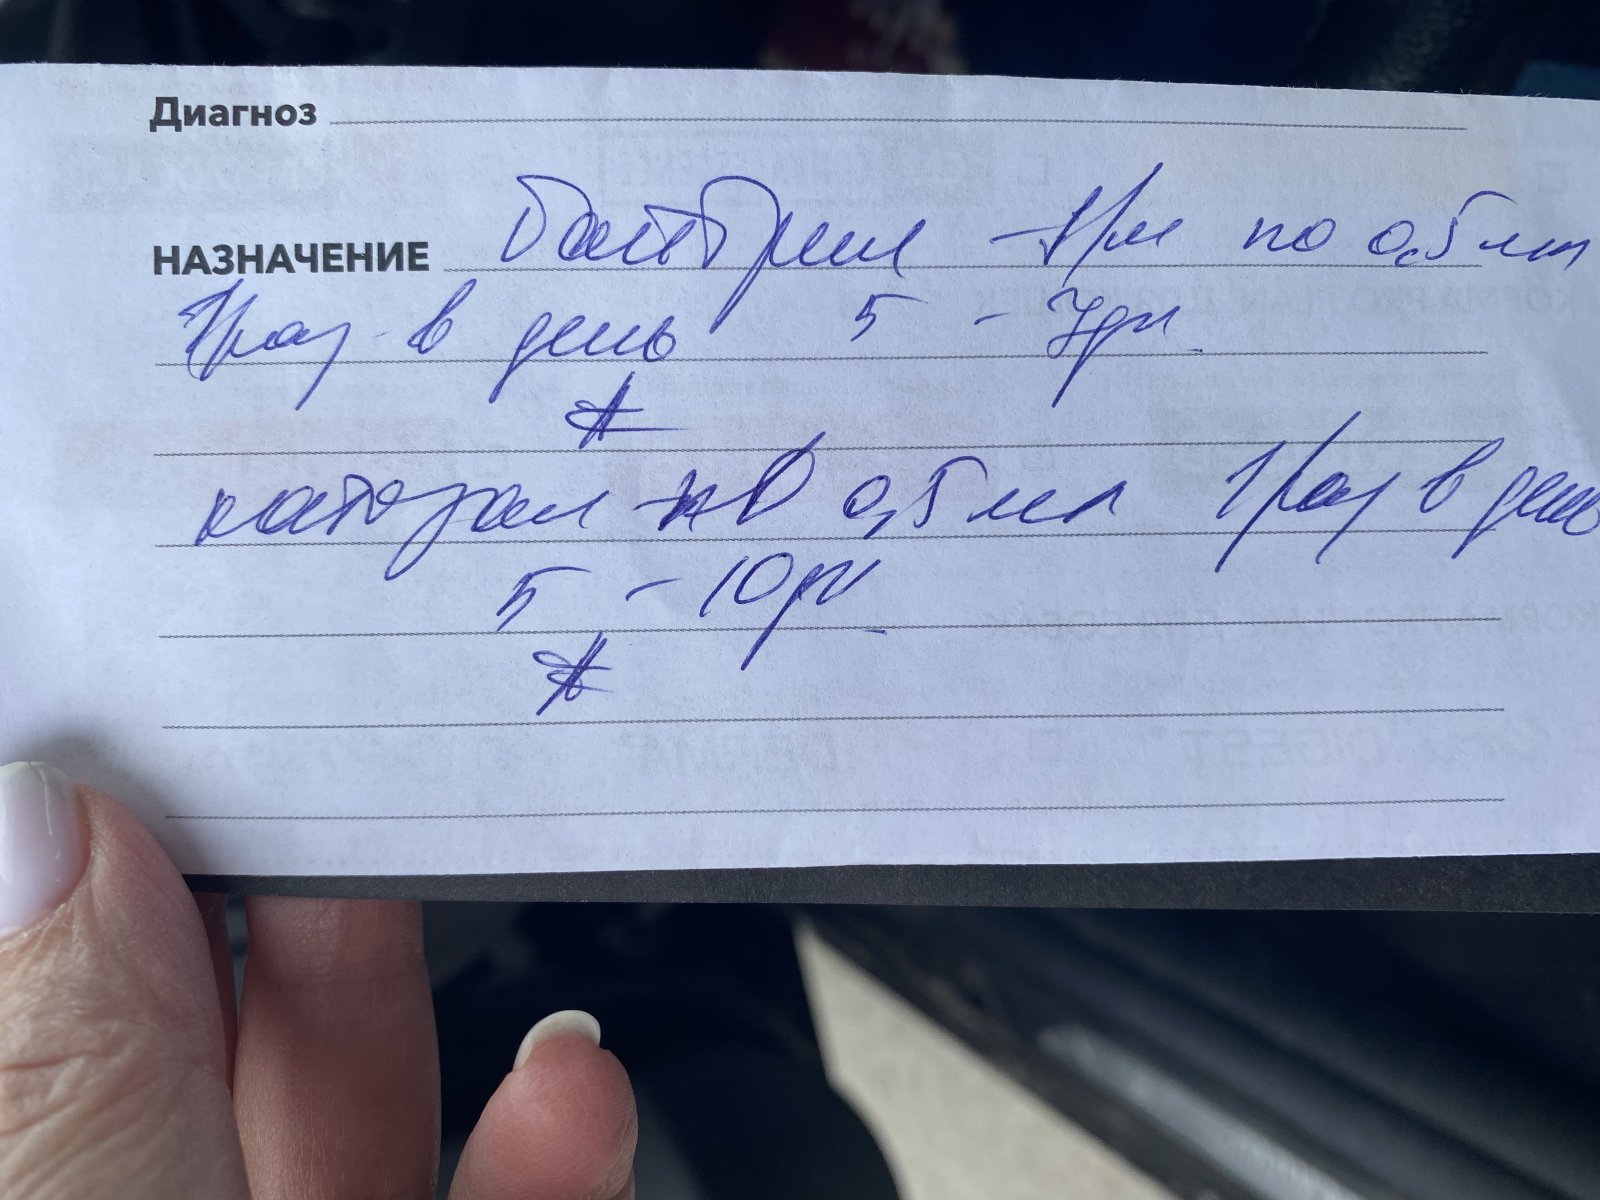 Диагноз
НАЗНАЧЕНИЕ байтрил - в/м по 0,5 мл
1 раз в день 5 - 7 дн.
*
катозал - п/к 0,5 мл 1 раз в день
5 - 10 дн.
*